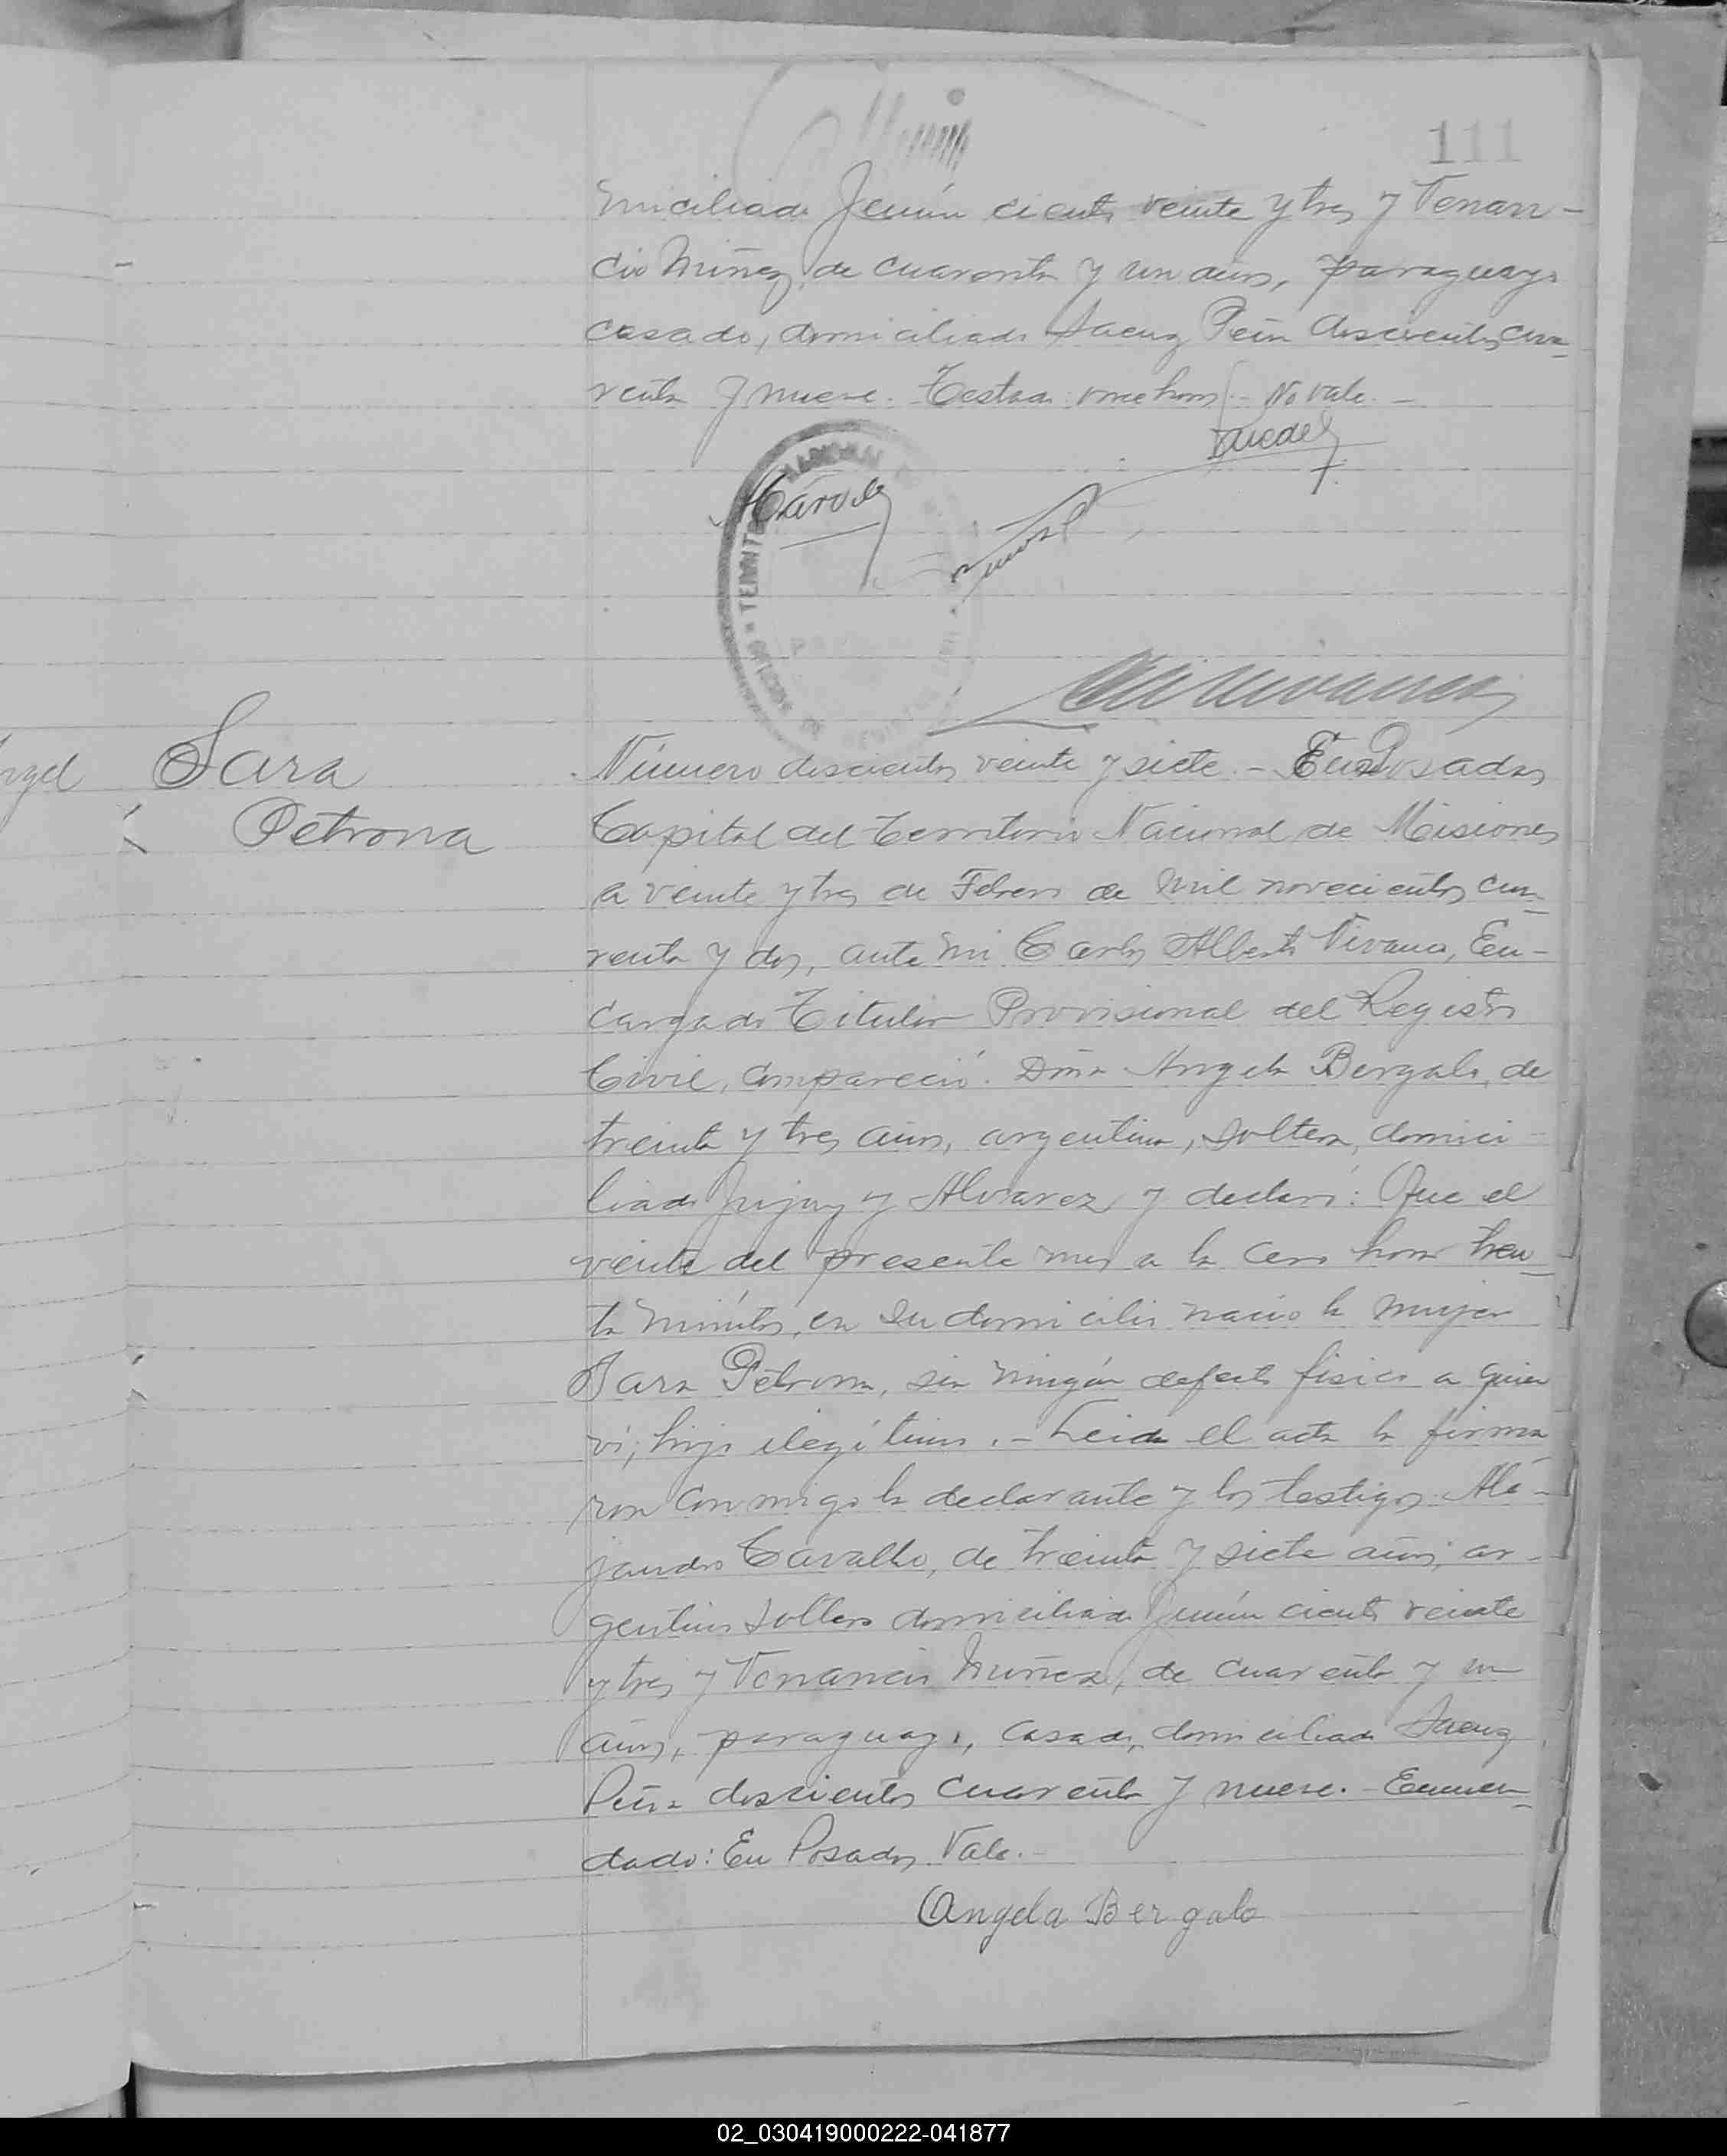 111
miciliado Junín ciento veinte y tres y Venan-
cio Núñez, de cuarenta y un años, paraguayo
casado, domiciliado Saenz Peña doscientos cua-
renta y nueve. Testado: once horas - No vale. -
TERRITORIO NACIONAL
Sara
Petrona
Número doscientos veinte y siete. - En Posadas
Capital del Territorio Nacional de Misiones
a veinte y tres de Febrero de mil novecientos cua-
renta y dos, ante mi Carlos Alberto Vivanco, En-
cargado Titular Provisional del Registro
Civil, compareció: Doña Angela Bergalo, de
treinta y tres años, argentina, soltera, domici-
liada Jujuy y Alvarez y declaró: Que el
veinte del presente mes a la cero hora trein-
ta minutos, en su domicilio nació la mujer
Sara Petrona, sin ningún defecto fisico a quien
vi, hijo ilegítimo. - Leida el acta la firma
ron conmigo la declarante y los testigos Ale-
jandro Carvallo, de treinta y siete años, ar-
gentino soltero domiciliado Junín ciento veinte
y tres y Venancio Núñez, de cuarenta y un
años, paraguayo, casado, domiciliado Saenz
Peña doscientos cuarenta y nueve. - Enmen-
dado: En Posadas Vale. -
Angela Bergalo
02_030419000222-041877